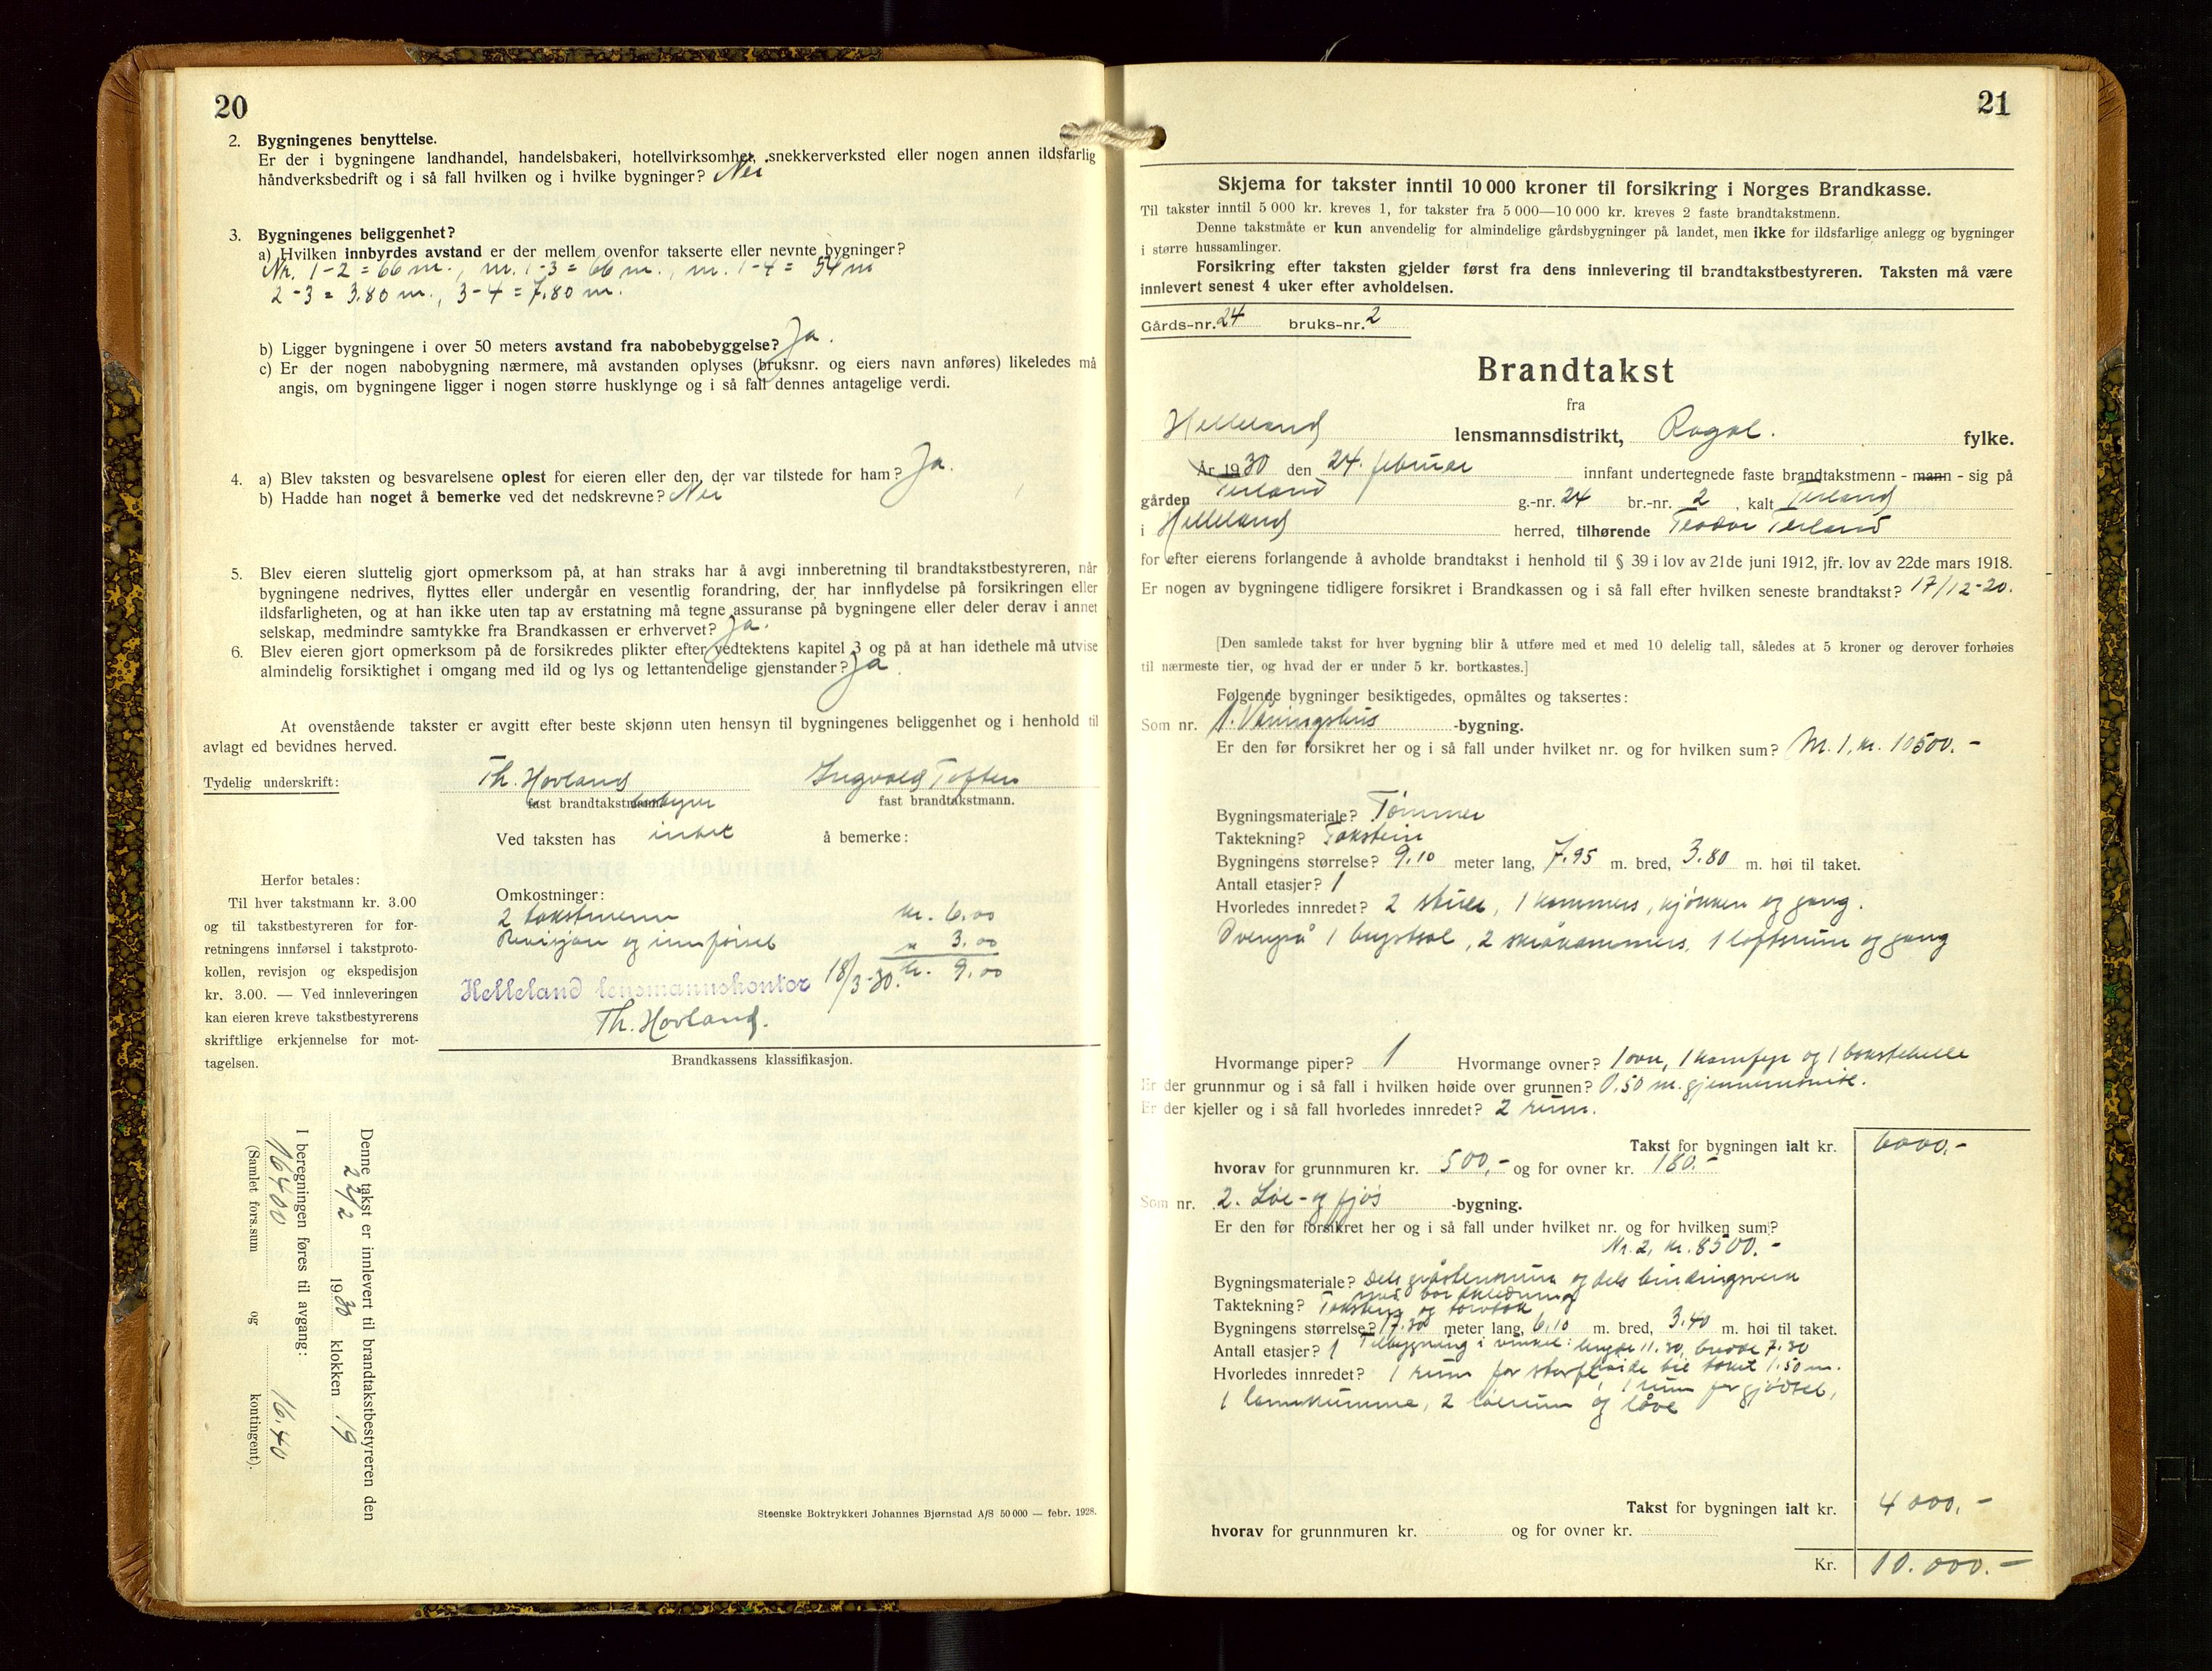 20
2. Bygningenes benyttelse.
Er der i bygningene landhandel, handelsbakeri, hotellvirksomhet, snekkerverksted eller nogen annen ildsfarlig
håndverksbedrift og i så fall hvilken og i hvilke bygninger? Nei
3. Bygningenes beliggenhet?
a) Hvilken innbyrdes avstand er der mellem ovenfor takserte eller nevnte bygninger?
Nr. 1-2 = 66 m., nr. 1-3 = 66 m., nr. 1-4 = 54 m
2-3 = 3.80 m., 3-4 = 7.80 m.
b) Ligger bygningene i over 50 meters avstand fra nabobebyggelse? Ja.
c) Er der nogen nabobygning nærmere, må avstanden oplyses (bruksnr. og eiers navn anføres) likeledes må
angis, om bygningene ligger i nogen større husklynge og i så fall dennes antagelige verdi.
4. a) Blev taksten og besvarelsene oplest for eieren eller den, der var tilstede for ham? Ja.
b) Hadde han noget å bemerke ved det nedskrevne? Nei
5. Blev eieren sluttelig gjort opmerksom på, at han straks har å avgi innberetning til brandtakstbestyreren, når
bygningene nedrives, flyttes eller undergår en vesentlig forandring, der har innflydelse på forsikringen eller
ildsfarligheten, og at han ikke uten tap av erstatning må tegne assuranse på bygningene eller deler derav i annet
selskap, medmindre samtykke fra Brandkassen er erhvervet? Ja.
6. Blev eieren gjort opmerksom på de forsikredes plikter efter vedtektens kapitel 3 og på at han idethele må utvise
almindelig forsiktighet i omgang med ild og lys og lettantendelige gjenstander? Ja.
At ovenstående takster er avgitt efter beste skjønn uten hensyn til bygningenes beliggenhet og i henhold til
avlagt ed bevidnes herved.
Tydelig underskrift: Th. Hovland Ingvald Toften
fast brandtakst fast brandtakstmann.
Ved taksten has intet å bemerke:
Herfor betales:
Til hver takstmann kr. 3.00
og til takstbestyreren for for-
retningens innførsel i takstproto-
kollen, revisjon og ekspedisjon
kr. 3.00. — Ved innleveringen
kan eieren kreve takstbestyrerens
skriftlige erkjennelse for mot-
tagelsen.
Omkostninger:
2 takstmenn kr. 6.00
Revisjon og innførsel " 3.00
kr. 9.00
Helleland lensmannskontor 18/3-30.
Th. Hovland.
Brandkassens klassifikasjon.
Denne takst er innlevert til brandtakstbestyreren den
27/2 1930 klokken 19
I beregningen føres til avgang:
16400 16.40
(Samlet fors.sum og kontingent).
Steenske Boktrykkeri Johannes Bjørnstad A/S 50 000 — febr. 1928.
21
Skjema for takster inntil 10 000 kroner til forsikring i Norges Brandkasse.
Til takster inntil 5 000 kr. kreves 1, for takster fra 5 000—10 000 kr. kreves 2 faste brandtakstmenn.
Denne takstmåte er kun anvendelig for almindelige gårdsbygninger på landet, men ikke for ildsfarlige anlegg og bygninger
i større hussamlinger.
Forsikring efter taksten gjelder først fra dens innlevering til brandtakstbestyreren. Taksten må være
innlevert senest 4 uker efter avholdelsen.
Gårds-nr. 24 bruks-nr. 2
Brandtakst
fra
Helleland lensmannsdistrikt, Rogal. fylke.
År 1930 den 24. februar innfant undertegnede faste brandtakstmenn - mann - sig på
gården Terland g.-nr. 24 br.-nr. 2, kalt Terland
i Helleland herred, tilhørende Teodor Terland
for efter eierens forlangende å avholde brandtakst i henhold til § 39 i lov av 21de juni 1912, jfr. lov av 22de mars 1918.
Er nogen av bygningene tidligere forsikret i Brandkassen og i så fall efter hvilken seneste brandtakst? 17/12-20.
[Den samlede takst for hver bygning blir å utføre med et med 10 delelig tall, således at 5 kroner og derover forhøies
til nærmeste tier, og hvad der er under 5 kr. bortkastes.]
Følgende bygninger besiktigedes, opmåltes og taksertes:
Som nr. 1. Våningshus -bygning.
Er den før forsikret her og i så fall under hvilket nr. og for hvilken sum? Nr. 1, kr. 10500.-
Bygningsmateriale? Tømmer
Taktekning? Takstein
Bygningens størrelse? 9.10 meter lang, 7.95 m. bred, 3.80 m. høi til taket.
Antall etasjer? 1
Hvorledes innredet? 2 stuer, 1 kammers, kjøkken og gang.
Ovenpå 1 brystsal, 2 skråkammers, 1 loftsrum og gang
Hvormange piper? 1 Hvormange ovner? 1 ovn, 1 komfyr og 1 bakstehelle
Er der grunnmur og i så fall i hvilken høide over grunnen? 0.50 m. gjennemsnitt.
Er der kjeller og i så fall hvorledes innredet? 2 rum.
Takst for bygningen ialt kr. 6000.-
hvorav for grunnmuren kr. 500,- og for ovner kr. 180.-
Som nr. 2. Løe- og fjøs -bygning.
Er den før forsikret her og i så fall under hvilket nr. og for hvilken sum?
Nr. 2, kr. 8500.-
Bygningsmateriale? Dels gråstensmur og dels bindingsverk
med bordkledning
Taktekning? Takstein og torvtak
Bygningens størrelse? 17.30 meter lang, 6.10 m. bred, 3.40 m. høi til taket.
Antall etasjer? 1 Tilbygning i vinkel: lengde 11.30, bredde 7.30
høide til taket 1.50 m.
Hvorledes innredet? 1 rum for storfe, 1 rum for gjødsel,
1 lammkumme, 2 løerum og låve
Takst for bygningen ialt kr. 4000,-
hvorav for grunnmuren kr. og for ovner kr.
Kr. 10.000.-